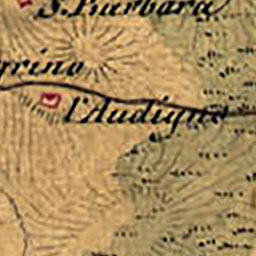 S. Barbara
grino
l'Audigno